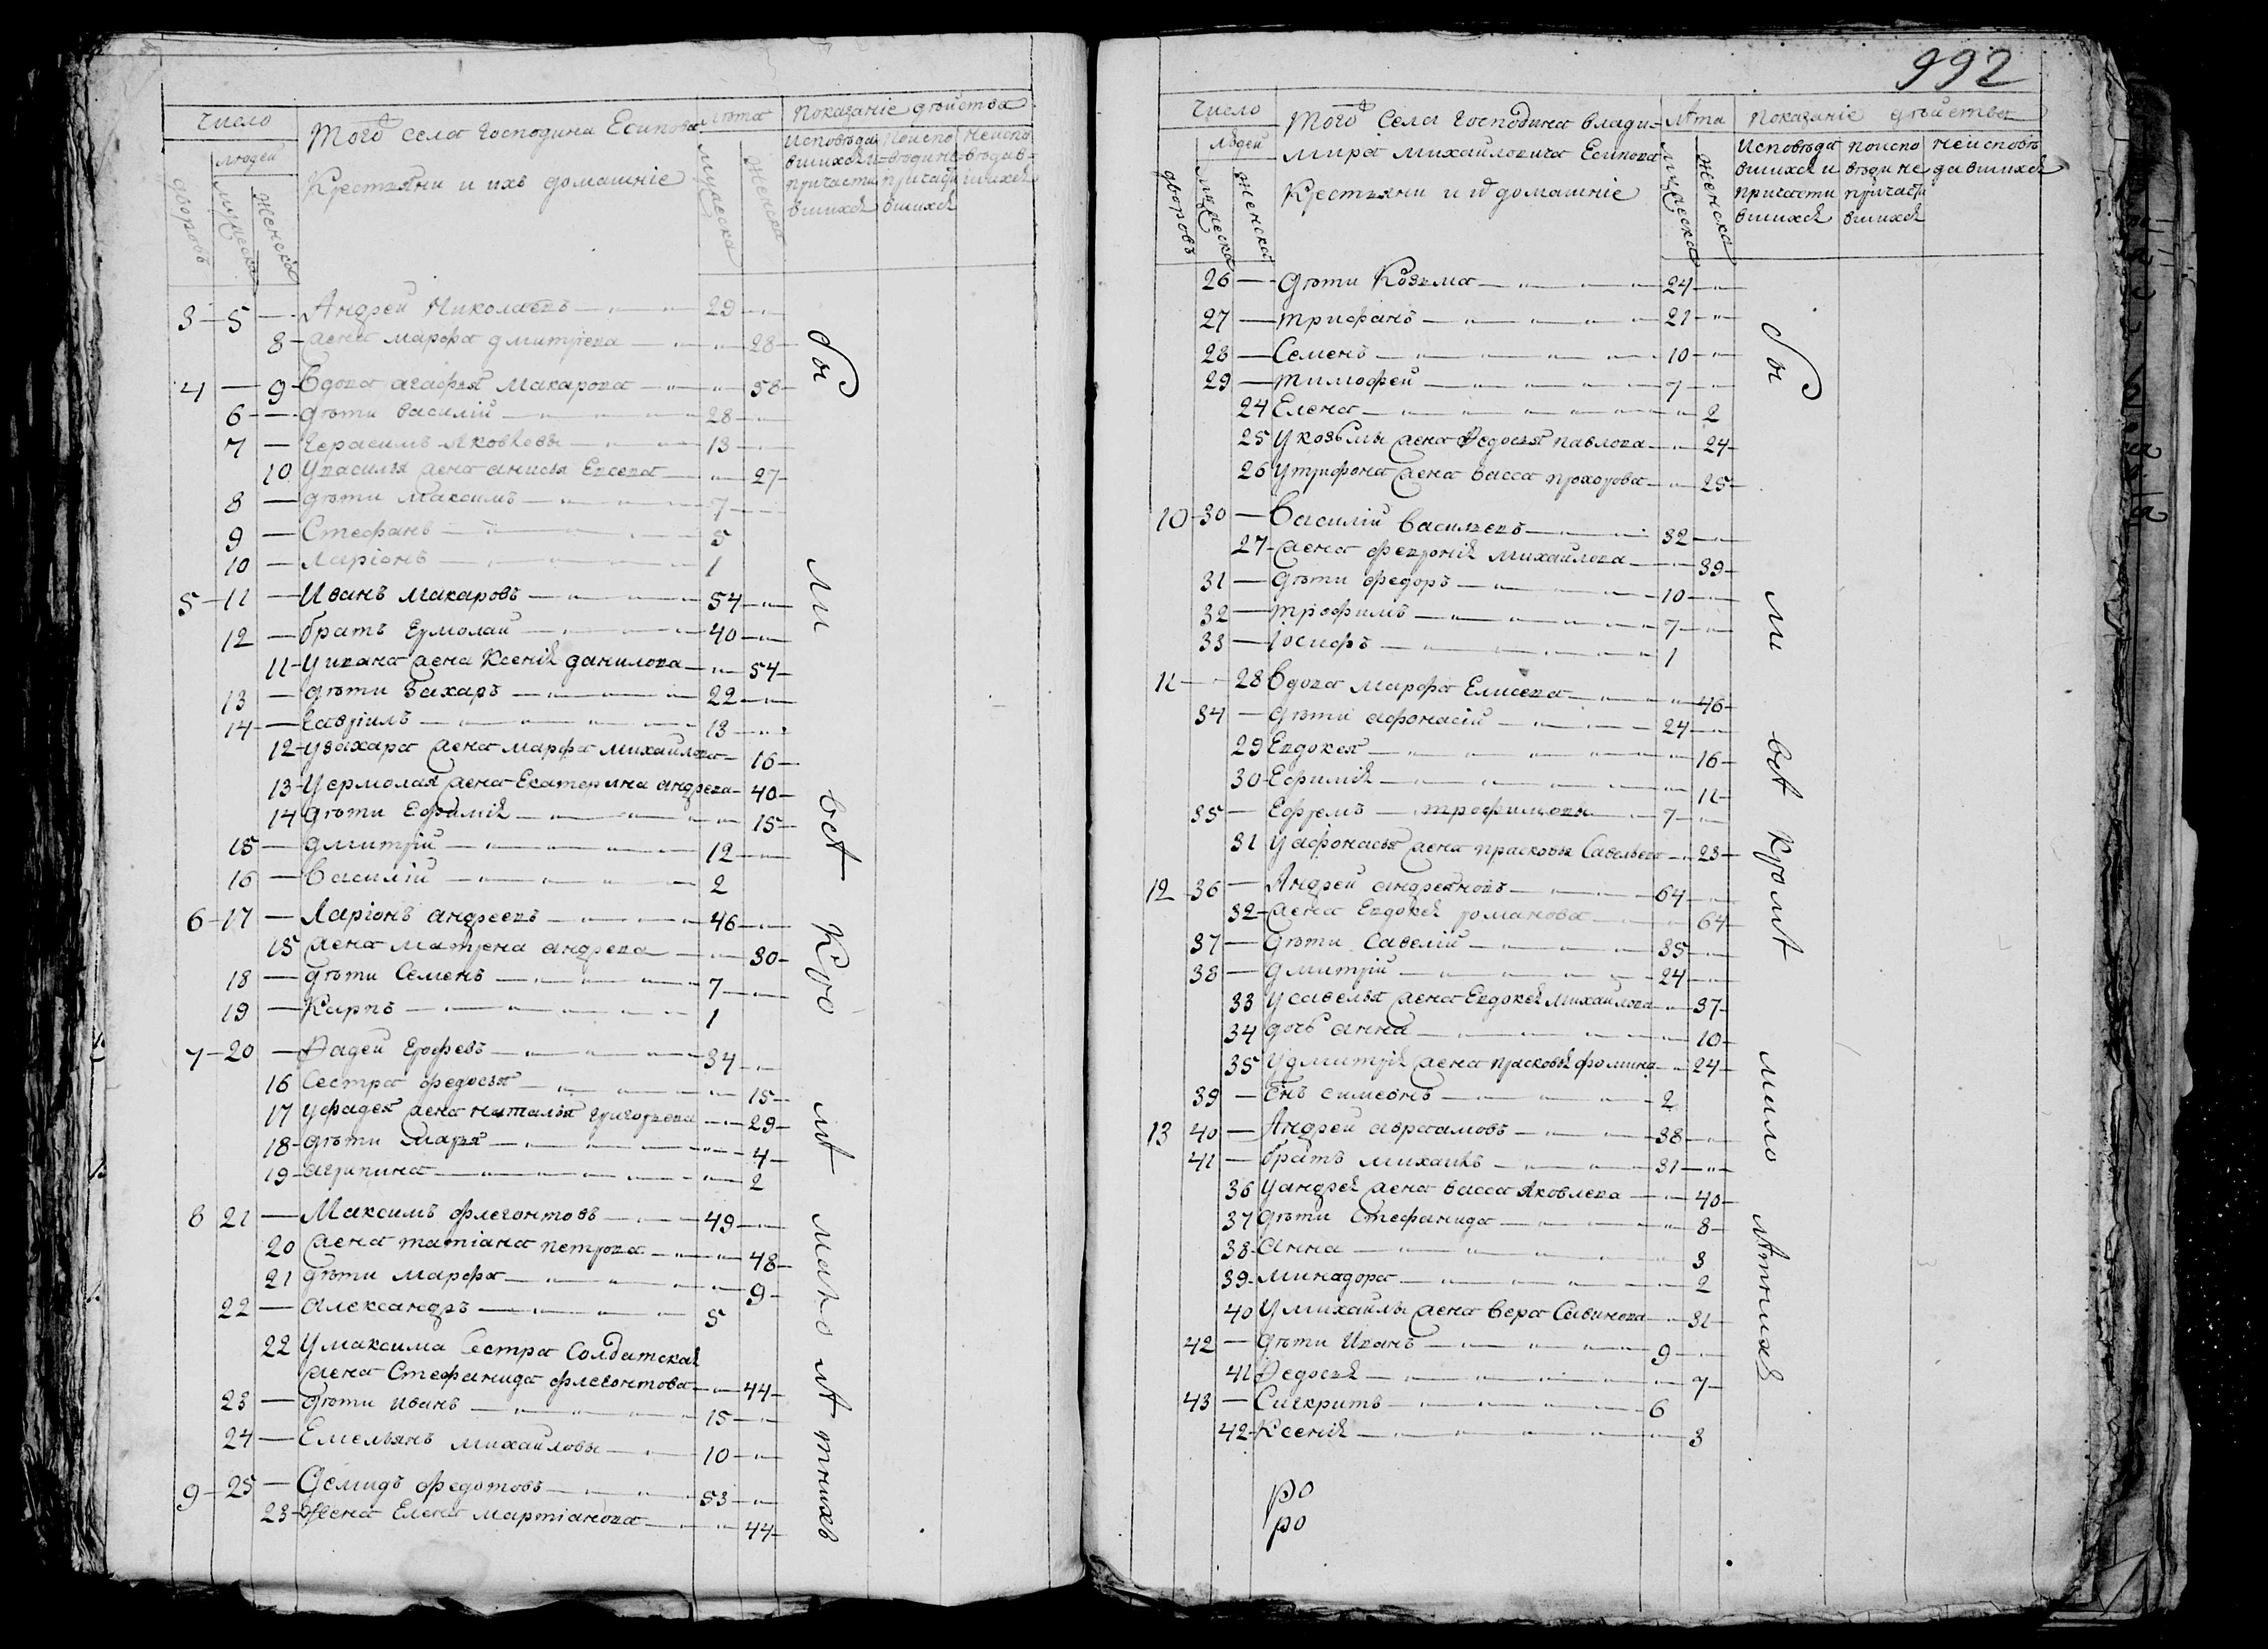 Число
Того села господина Есипова
лѣта
Показаніе дѣйства
людей
дворовъ
мужеска
женска
Крестьяни и ихъ домашніе
мужеска
женска
Исповѣда
вшихся и
причасти
вшихся
поиспо
вѣди не
причасти
вшихся
неиспо
вѣдав
шихся
3 — 5 — Андрей Николаевъ — 29
8 — жена Марфа Дмитріева — 28
4 — 9 — Вдова Агафья Макарова — 58
6 — дѣти Василій — 28
7 — Герасимъ Яковлевы — 13
10 У Василья жена Анисья Евсева — 27
8 — дѣти Максимъ — 7
9 — Стефанъ — 5
10 — Ларіонъ — 1
5 — 11 — Иванъ Макаровъ — 54
12 — братъ Ермолай — 40
11 — У Ивана жена Ксенія Данилова — 54
13 — дѣти Захаръ — 22
14 — Гавріилъ — 13
12 — У Захара жена Марфа Михайлова — 16
13 — У Ермолая жена Екатерина Андрева — 40
14 дѣти Ефимія — 15
15 — Дмитрій — 12
16 — Василій — 2
6 — 17 — Ларіонъ Андреевъ — 46
15 жена Матрена Андрева — 30
18 — дѣти Семенъ — 7
19 — Карпъ — 1
7 — 20 — Фадей Ерофевъ — 34
16 Сестра Федосья — 15
17 У Фадея жена Наталья Григорьева — 29
18 — дѣти Марья — 4
19 — Агрипина — 2
8 21 — Максимъ Флегонтовъ — 49
20 жена Татіана Петрова — 48
21 дѣти Марфа — 9
22 — Александръ — 5
22 У Максима Сестра Солдатская
жена Стефанида Флегонтова — 44
23 — дѣти Иванъ — 15
24 — Емельянъ Михайловы — 10
9 — 25 — Демидъ Федотовъ — 53
23 — Жена Елена Мартіанова — 44
бы
ли
всѧ
Кро
мѣ
мало
лѣтнихъ
992
Число
Того Села господина Влади-
лѣта
Показаніе дѣйства
людей
мира Михайловича Есипова
дворовъ
мужеска
женска
Крестьяни и их домашніе
мужеска
женска
Исповѣда
вшихся и
причасти
вшихся
поиспо
вѣди не
причасти
вшихся
неисповѣ
давшихся
26 — дѣти Козьма — 24
27 — Трифанъ — 21
28 — Семенъ — 10
29 — Тимофей — 7
24 Елена — 2
25 У Козьмы жена Федосья Павлова — 24
26 У Трифона жена Васса Прохорова — 25
10 — 30 — Василій Васильевъ — 32
27 — жена Феврония Михайлова — 39
31 — дѣти Федоръ — 10
32 — Трофимъ — 7
33 — Іосифъ — 1
11 — 28 Вдова Марфа Елисева — 46
34 — дѣти Афонасій — 24
29 Евдокея — 16
30 — Ефимія — 11
35 — Ефремъ — Трофимовы — 7
31 У Афонасья жена Прасковья Савельева — 23
12 — 36 — Андрей Андреяновъ — 64
32 — жена Евдокея Романова — 64
37 — дѣти Савелій — 35
38 — Дмитрій — 24
33 У Савелья жена Евдокея Михайлова — 37
34 дочь Анна — 10
35 У Дмитрія жена Прасковья Фомина — 24
39 — Снъ Симеонъ — 2
13 40 — Андрей Аврамовъ — 38
41 — братъ Михаилъ — 31
36 У Андрея жена Васса Яковлева — 40
37 дѣти Стефанида — 8
38 — Анна — 3
39 — Минадора — 2
40 У Михайлы жена Вера Савинова — 31
42 — дѣти Иванъ — 9
41 Федосья — 7
43 — Сигкритъ — 6
42 — Ксенія — 3
ро
ро
бы
ли
всѧ
Кромѧ
мало
лѣтния